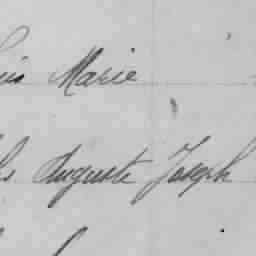 Marie
Auguste Joseph